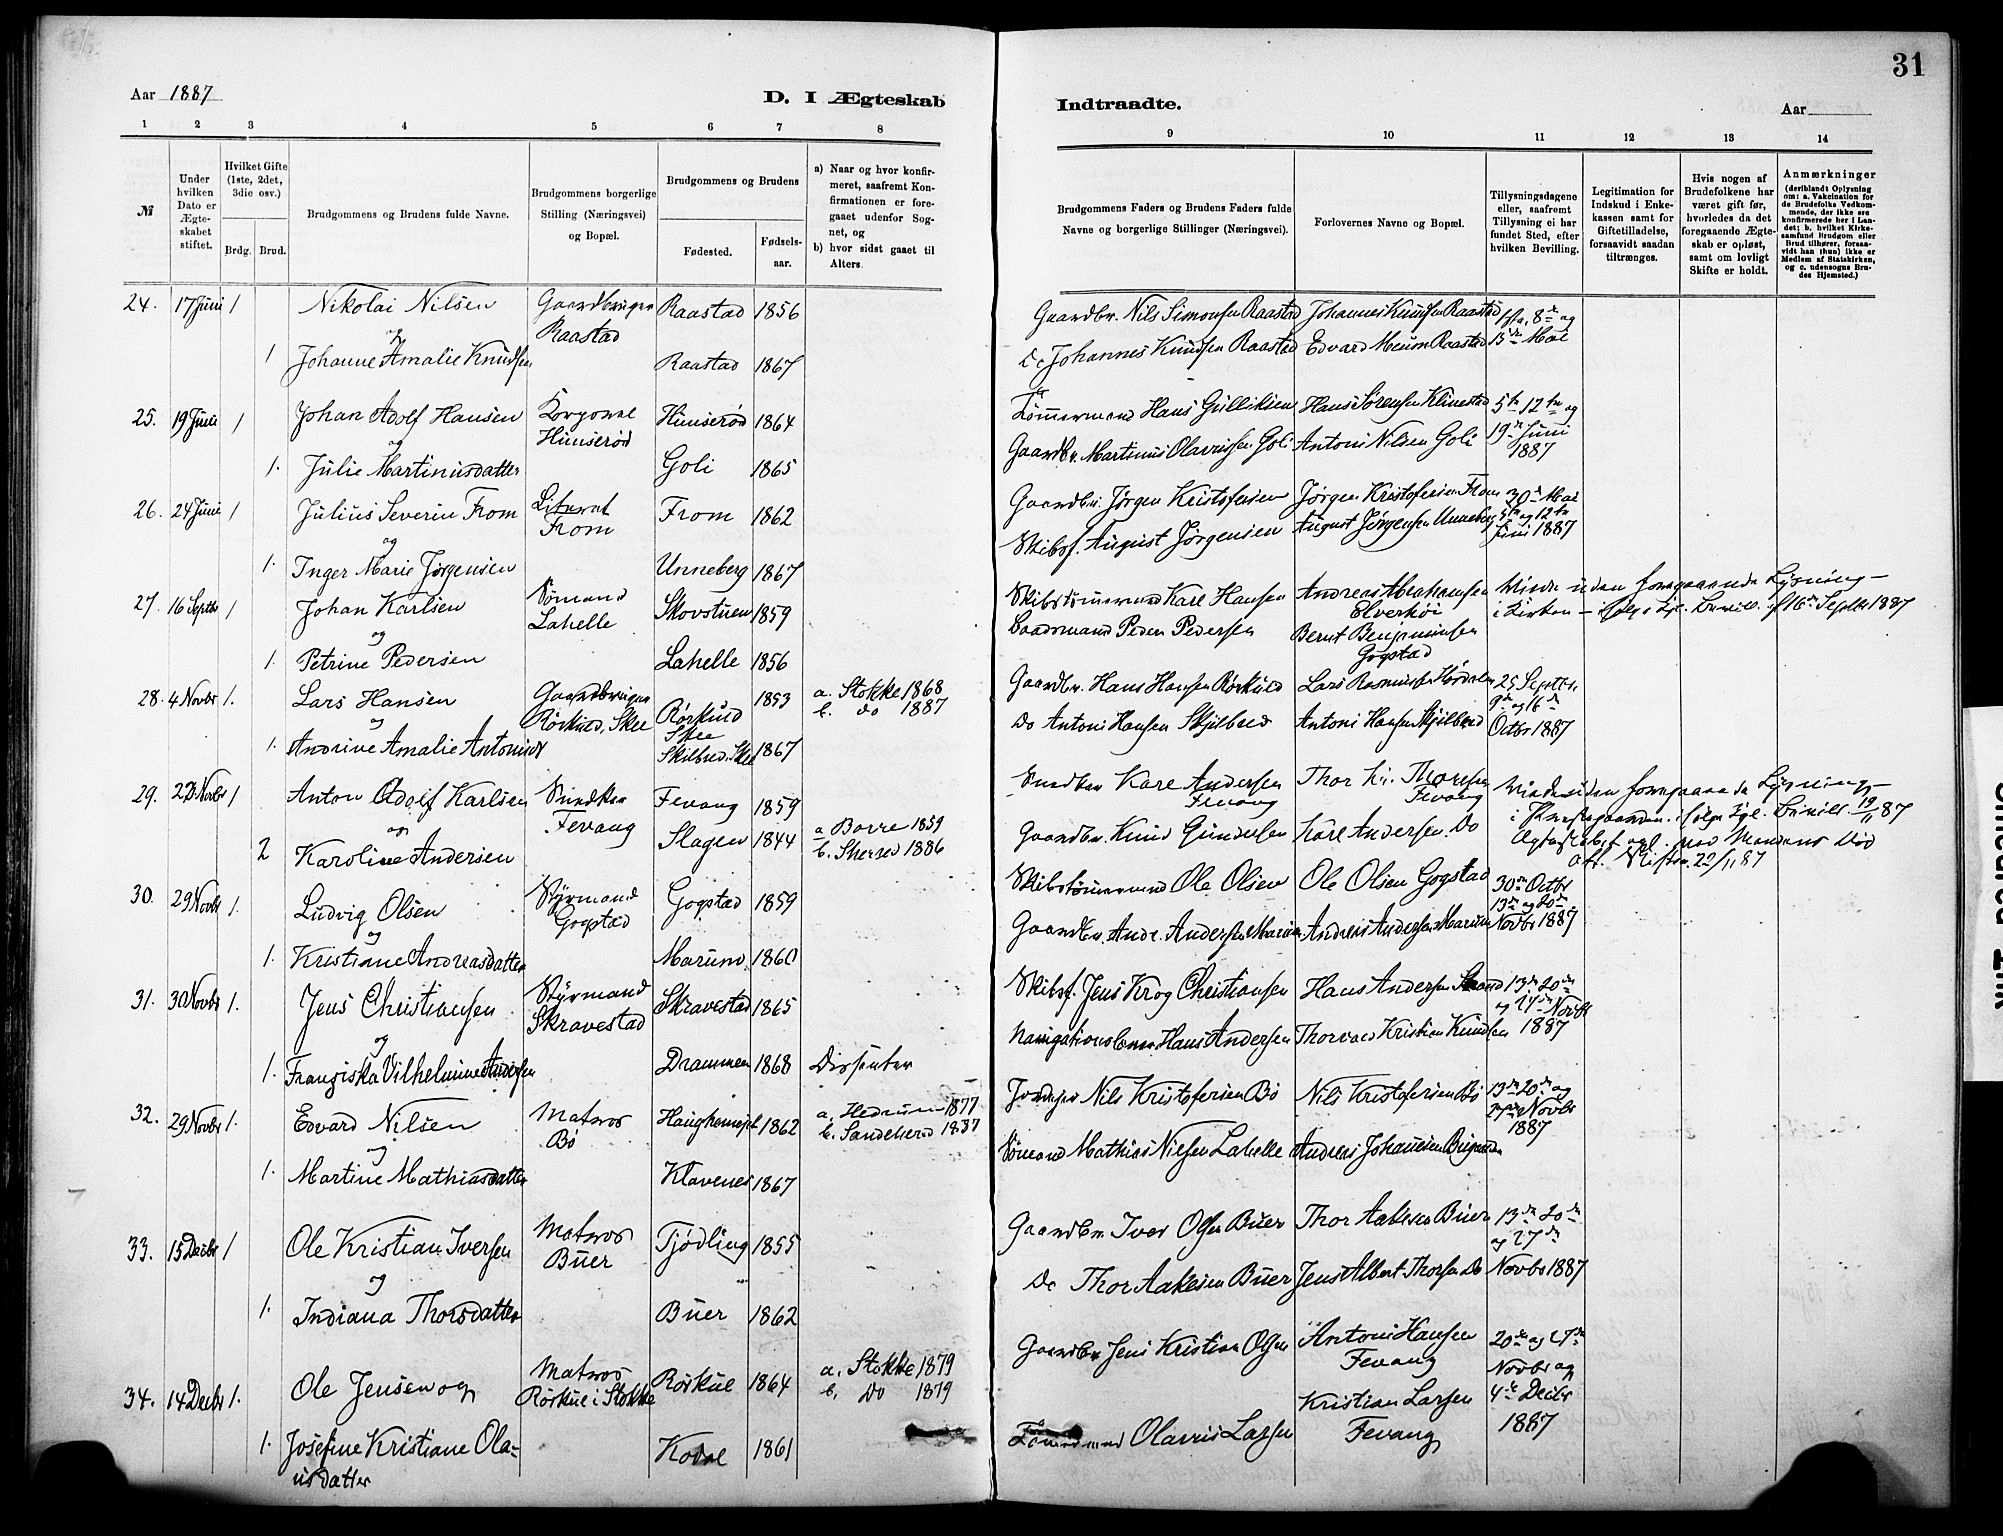 31
Aar 1887
D. I Ægteskab
Indtraadte.
Aar
1 2 3 4 5 6 7 8
9 10 11 12 13 14
№
Under hvilken Dato er Ægte-skabet stiftet.
Hvilket Gifte (1ste, 2det, 3die osv.)
Brdg. Brud.
Brudgommens og Brudens fulde Navne.
Brudgommens borgerlige Stilling (Næringsvei) og Bopæl.
Brudgommens og Brudens
Fødested.
Fødsels-aar.
a) Naar og hvor konfir-meret, saafremt Kon-firmationen er fore-gaaet udenfor Sog-net, og
b) hvor sidst gaaet til Alters.
Brudgommens Faders og Brudens Faders fulde Navne og borgerlige Stillinger (Næringsvei).
Forlovernes Navne og Bopæl.
Tillysningsdagene eller, saafremt Tillysning ei har fundet Sted, efter hvilken Bevilling.
Legitimation for Indskud i Enke-kassen samt for Giftetilladelse, forsaavidt saadan tiltrænges.
Hvis nogen af Brudefolkene har været gift før, hvorledes da det foregaaende Ægte-skab er opløst, samt om lovligt Skifte er holdt.
Anmærkninger
(deriblandt Oplysning om: a. Vakcination for de Brudefolks Vedkom-mende, der ikke ere konfirmerede her i Lan-det; b. hvilket Kirke-samfund Brudgom eller Brud tilhører, forsaa-vidt han (hun) ikke er Medlem af Statskirken, og c. udensogns Bru-des Hjemsted.)
24. 17 Juni 1 Nikolai Nilsen Gaardbruger Raastad 1856
og Raastad
1 Johanne Amalie Knudsen Raastad 1867
Gaardbr. Nils Simonsen Raastad Johannes Knudsen Raastad 8de og
Do Johannes Knudsen Raastad Edvard Meum Raastad 15de Mai
25. 19 Juni 1 Johan Adolf Hansen Hunserød 1864
og Hunserød
1. Julie Martinusdatter Goli 1865
Tømmermand Hans Gulliksen Hans Sørensen Klinestad 5te 12te og
Gaardbr. Martinus Olavussen Goli Antoni Nilsen Goli 19de Juni
1887
26. 24 Juni 1 Julius Severin From From From 1862
og
1. Inger Marie Jørgensen Unneberg 1867
Gaardbr. Jørgen Kristofersen Jørgen Kristofersen From 30te Mai
Skibsf. August Jørgensen August Jørgensen Unneberg 5te og 12te
Juni 1887
27. 16 Septbr 1 Johan Karlsen Sømand Skovstuen 1859
og Lahelle
1. Petrine Pedersen Lahelle 1856
Skibstømmermand Karl Hansen Andreas Abrahamsen uden foregaaende Lysning
Elverhøi i Kirken – ifølge Bevill. af 16de Septbr 1887
Baadsmand Peder Pedersen Bernt Benjaminsen
Gogstad
28. 4 Novbr 1. Lars Hansen Gaardbruger Rørkuld 1853 a. Stokke 1868
og Rørkuld, Skee Skee b. do 1887
1. Andrine Amalie Antonisdt Skilbred, Skee 1867
Gaardbr. Hans Hansen Rørkuld Lars Rasmussen 25 Septbr.
9de og 16de
Do Antoni Hansen Skjelbred Antoni Hansen Skjelbred Octbr 1887
29. Novbr 1 Anton Adolf Karlsen Fevang 1859
og Fevang
2 Karoline Andersen Slagen 1844 a. Borre 1859
b. 1886
Karl Andersen Fevang Thor Thorsen Fevang uden foregaaende Lysning
Gaardbr. Knud Gundersen Karl Andersen Do 19/11 87
Mandens Død
29/11 87
30. 29 Novbr 1. Ludvig Olsen Styrmand Gogstad 1859
og Gogstad
1. Kristiane Andreasdatter Marum 1860
Skibstømmermand Ole Olsen Ole Olsen Gogstad 30te Octbr
13de og 20de
Gaardbr. Andr. Andersen Marum Andreas Andersen Marum Novbr 1887
31. 30 Novbr 1. Jens Christiansen Styrmand Skravestad 1865
og Skravestad
1. Franziska Vilhelmine Andersen Drammen 1868 Dissenter
Skibsf. Jens Krog Christiansen Hans Andersen Strand 13de 20de
og 27de Novbr
Navigationslærer Hans Andersen Thorvald Kristian Knudsen 1887
32. 29 Novbr 1. Edvard Nilsen Matros 1862 a. Hedrum 1877
og Bø b. Sandeherred 1887
1. Martine Mathiasdatter Klavenes 1867
Nils Kristofersen Bø Nils Kristofersen Bø 13de 20de og
27de Novbr
1887
Sømand Mathias Nielsen Lahelle Andreas Johannesen
33. 15 Decbr 1 Ole Kristian Iversen Matros Tjødling 1855
og Buer
1. Indiana Thorsdatter Buer 1862
Gaardbr. Iver Olsen Buer Thor Aakesen Buer 13de 20de
og 27de
Do Thor Aakesen Buer Jens Albert Thorsen Do Novbr 1887
34. 14 Decbr 1. Ole Jensen og Matros Rørkul 1864 a. Stokke 1879
Rørkul i Stokke b. Do 1879
1. Josefine Kristiane Ola- Kodal 1861
usdatter
Gaardbr. Jens Kristian Olsen Antoni Hansen 20de og 27de
Fevang Novbr og
Kristian Larsen 4de Decbr
Tømmermand Olavus Larsen Fevang 1887